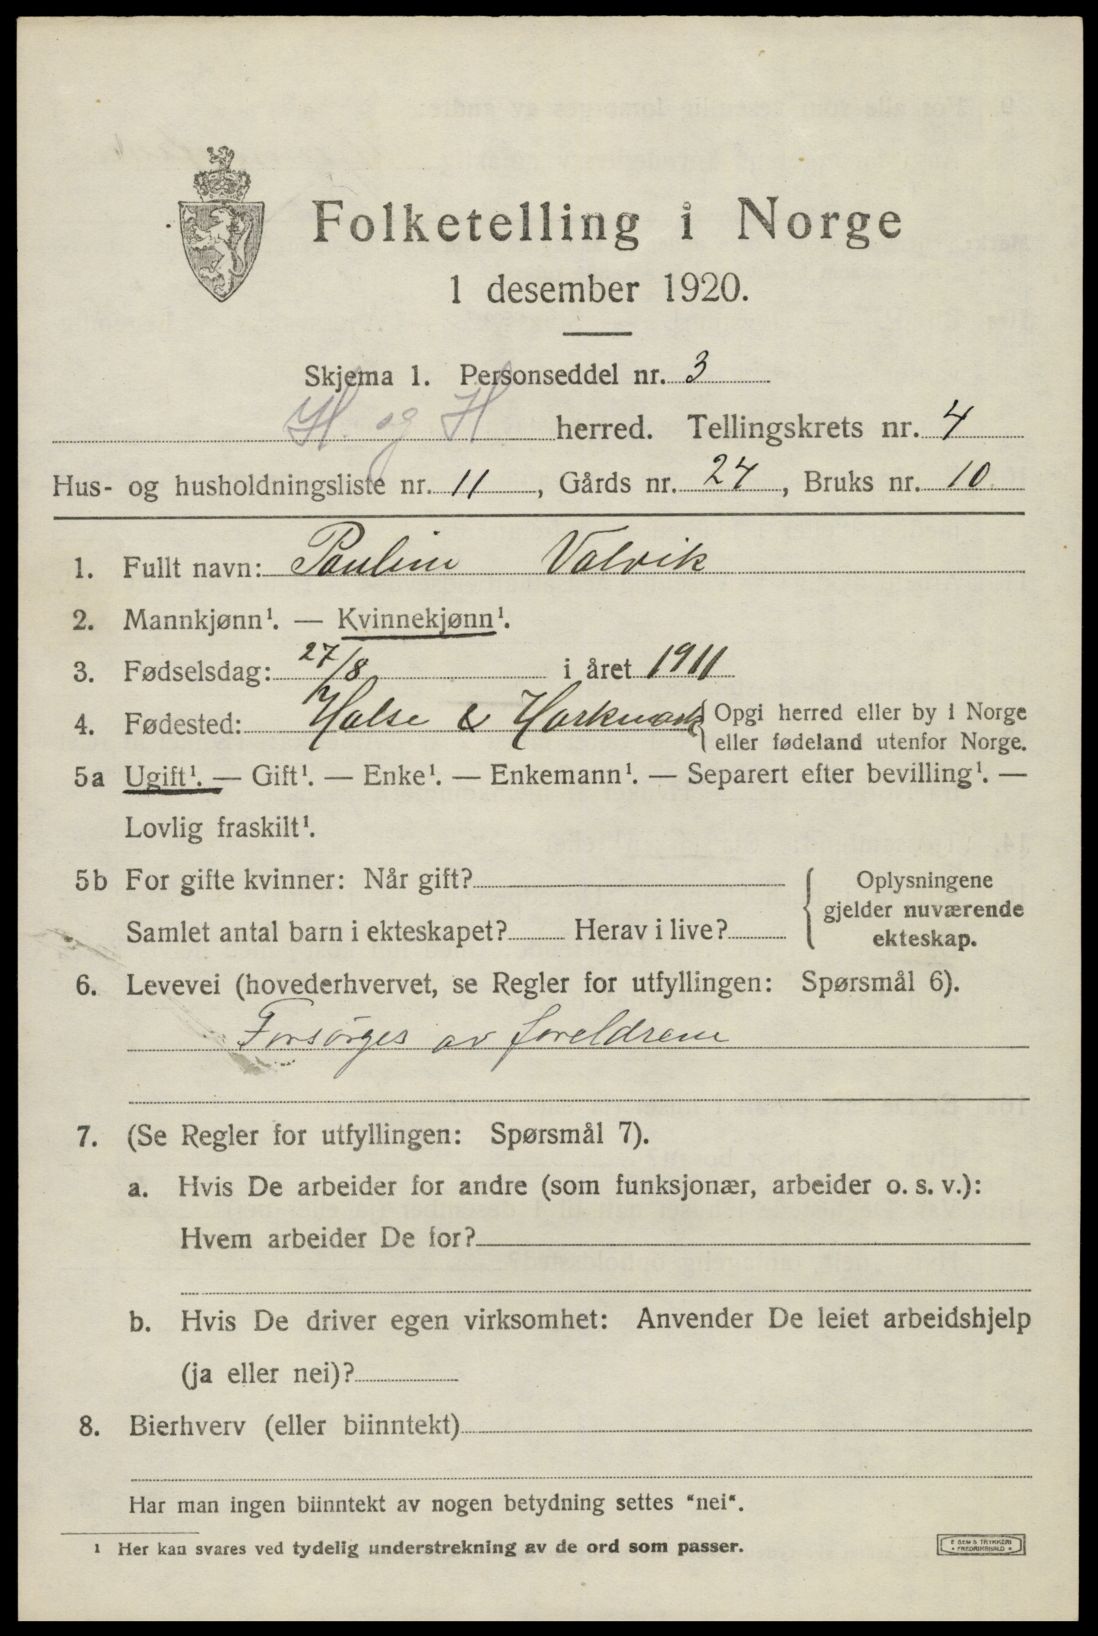 Folketelling i Norge
1 desember 1920.
Skjema 1. Personseddel nr. 3
H. og H herred. Tellingskrets nr. 4
Hus- og husholdningsliste nr. 11, Gårds nr. 24, Bruks nr. 10
1. Fullt navn: Pauline Valvik
2. Mannkjønn¹. — Kvinnekjønn¹.
3. Fødselsdag: 27/8 i året 1911
4. Fødested: Halse & Harkmark { Opgi herred eller by i Norge
eller fødeland utenfor Norge.
5a Ugift¹. — Gift¹. — Enke¹. — Enkemann¹. — Separert efter bevilling¹. —
Lovlig fraskilt¹.
5b For gifte kvinner: Når gift?
Samlet antal barn i ekteskapet? Herav i live?
{ Oplysningene
gjelder nuværende
ekteskap.
6. Levevei (hovederhvervet, se Regler for utfyllingen: Spørsmål 6).
Forsørges av foreldrene
7. (Se Regler for utfyllingen: Spørsmål 7).
a. Hvis De arbeider for andre (som funksjonær, arbeider o. s. v.):
Hvem arbeider De for?
b. Hvis De driver egen virksomhet: Anvender De leiet arbeidshjelp
(ja eller nei)?
8. Bierhverv (eller biinntekt)
Har man ingen biinntekt av nogen betydning settes "nei".
¹ Her kan svares ved tydelig understrekning av de ord som passer.
TRYKKERI
FREDRIKSHALD